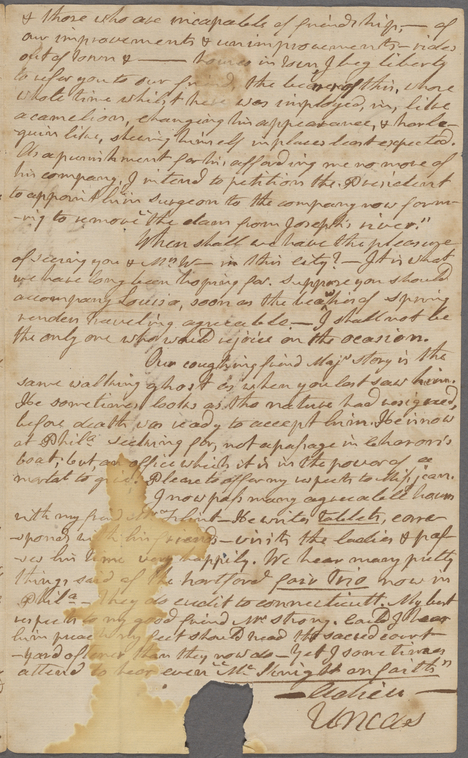 & those who are incapable of friendship, — of
our improvements & unimprovements — rides
out of town & — homes in town, I beg liberty
to refer you to our friend, the bearer of this, whose
whole time whilst here was imployed, in, like
a camelion, changing his appearance, & harle-
quin like, shewing himself in places least expected.
As a punishment for his affording me no more of
his company, I intend to petition the President
to appoint him surgeon to the company now form-
-ing to remove "the dam from Joseph's river."
When shall we have the pleasure
of seeing you & Mrs W— in this city? — It is what
we have long been hoping for. Suppose you should
accompany Louisa, soon as the weather of spring
renders traveling agreeable. — I shall not be
the only one who would rejoice on the ocasion.
Our coughing friend Majr Story is the
same walking ghost as when you last saw him.
He sometimes looks as tho nature had resigned,
before death was ready to accept him. He is now
at Phila seeking for, not a passage in Charon's
boat, but, an office which it is in the power of a
mortal to give. Please to offer my respects to
I now pass many agreeable hours
with my friend — He writes tablets, corre
-sponds with his friends — visits the ladies & pass
-es his time very happily. We hear many pretty
things said of the hartford fair Trio now in
Phila — They do credit to connecticutt. My best
respects to my good friend Mr Strong, could I hear
him preach my feet should tread the sacred court
-yard oftener than they now do — Yet I sometimes
attend to hear even "Mr Knight on faith"
— Adieu —
Uncas